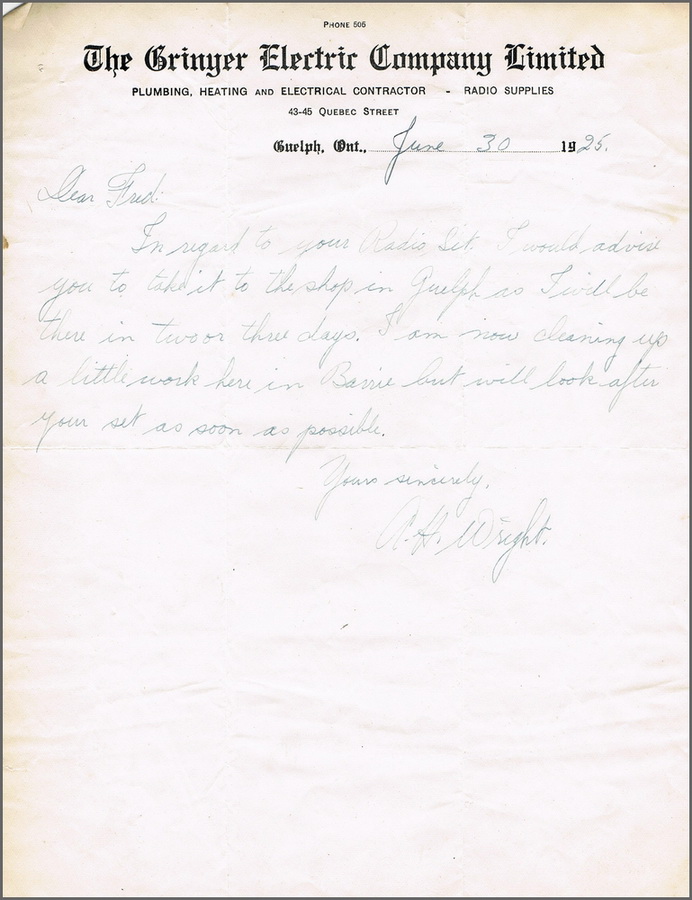 PHONE 506
The Grinyer Electric Company Limited
PLUMBING, HEATING AND ELECTRICAL CONTRACTOR - RADIO SUPPLIES
43-45 QUEBEC STREET
Guelph, Ont., June 30 1925.
Dear Fred:
In regard to your Radio Set. I would advise
you to take it to the shop in Guelph as I will be
there in two or three days. I am now cleaning up
a little work here in Barrie but will look after
your set as soon as possible.
Yours sincerely,
A. H. Wright.